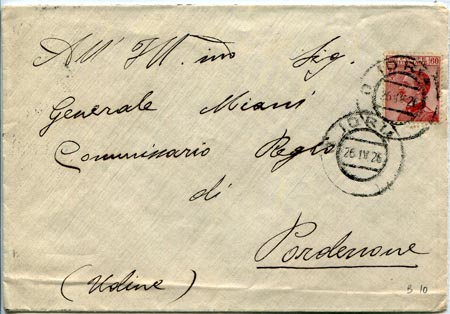 All' Ill.mo Sig.
Generale Miani
Commissario Regio
di
Pordenone
(Udine)
60
IDRIA
26 IV 26
B 10